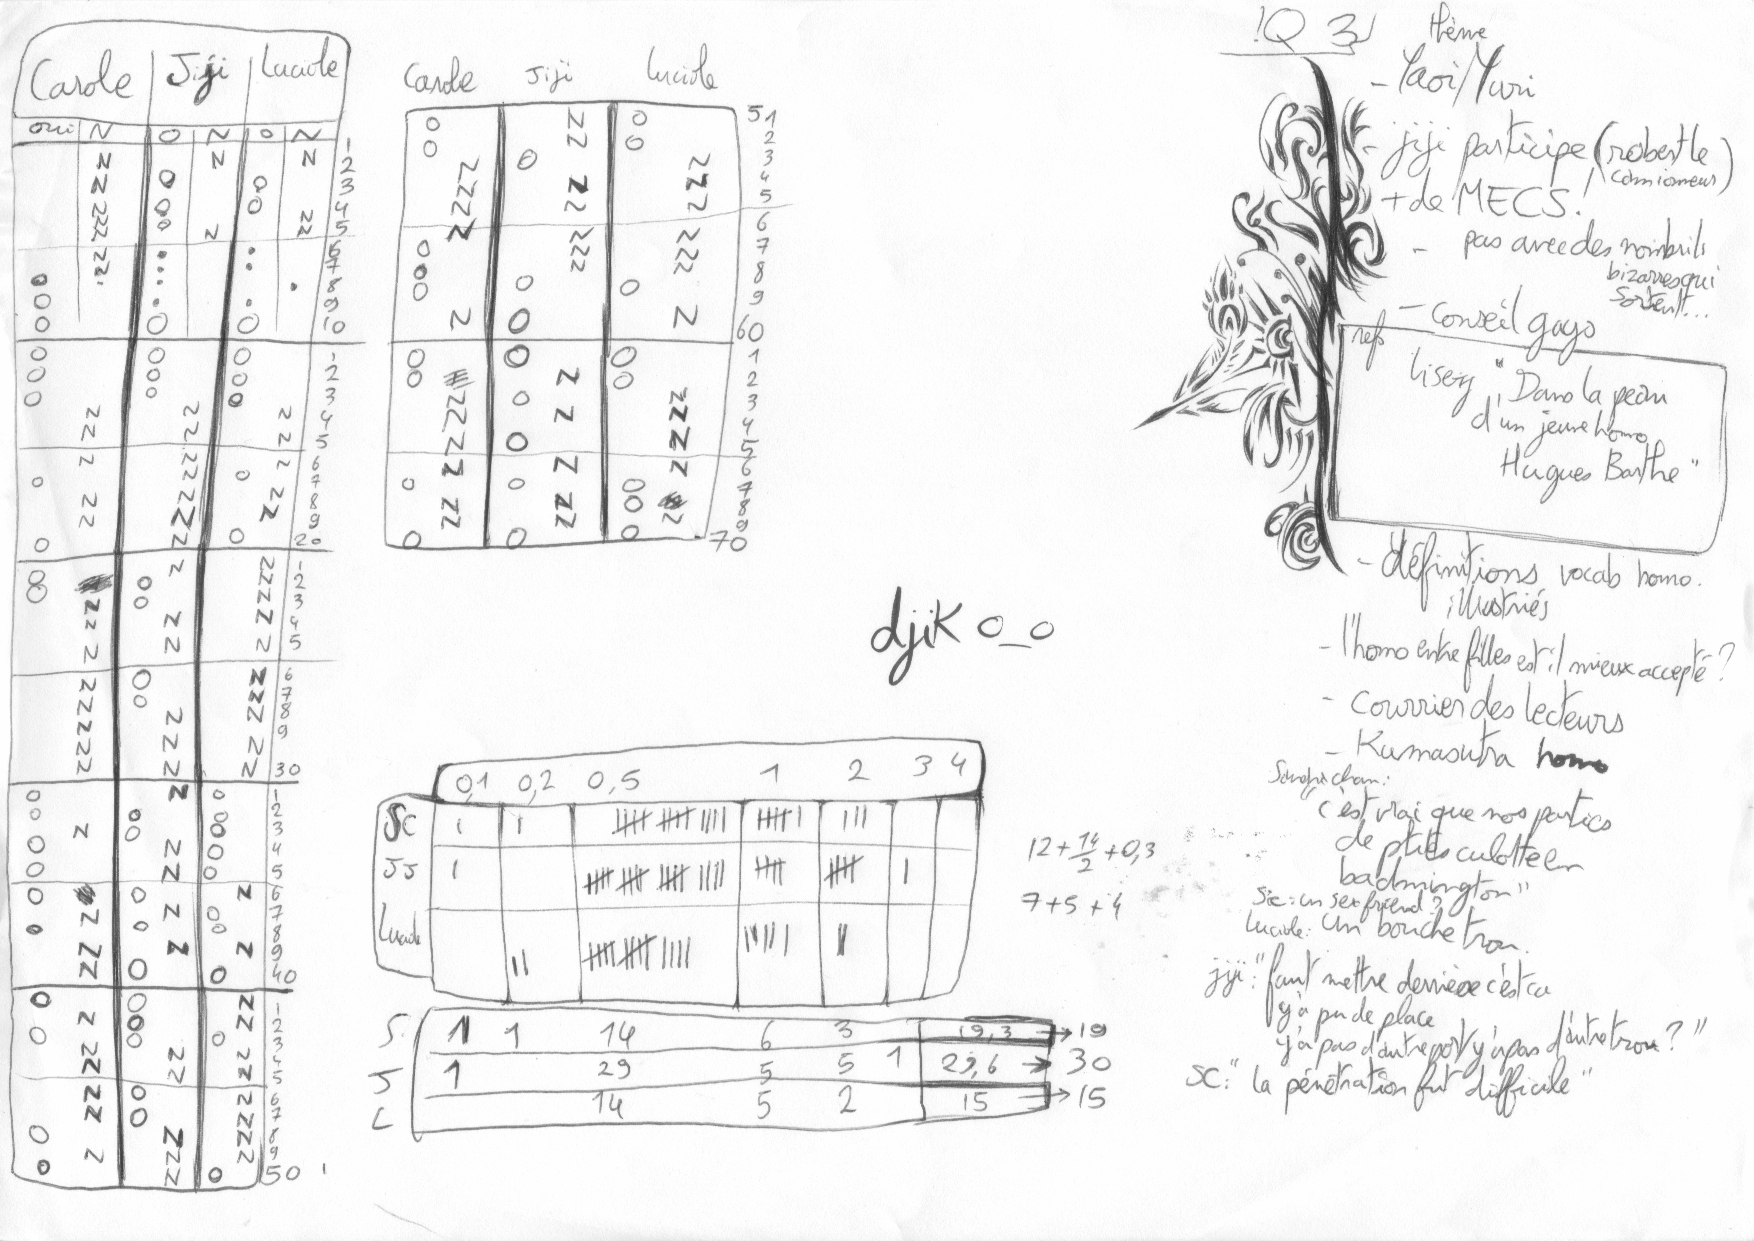 Carole Jiji Luciole
oui N O N O N
1
2
3
4
5
6
7
8
9
10
1
2
3
4
5
6
7
8
9
20
1
2
3
4
5
6
7
8
9
30
1
2
3
4
5
6
7
8
9
40
1
2
3
4
5
6
7
8
9
50
Carole Jiji Luciole
51
2
3
4
5
6
7
8
9
60
1
2
3
4
5
6
7
8
9
70
djiK O_O
0,1 0,2 0,5 1 2 3 4
SC
JJ
Luciole
12+14/2+0,3
7+5+4
S. 1 1 14 6 3 19,3 → 19
J 1 29 5 5 1 29,6 → 30
L 14 5 2 15 → 15
!Q 3
thème
- Yaoi/Yuri
- jiji participe (robert le
camionneur)
+ de MECS!
- pas avec des nombrils
bizarres qui
sortent...
- conseil gays
refs
Lisezy "Dans la peau
d'un jeune homo
Hugues Barthe"
- définitions vocab homo.
illustriés
- l'homo entre filles est il mieux accepté ?
- courrier des lecteurs
- Kumasutra homo
c'est vrai que nos parties
de ptites culotte en
badmington"
Sc: un sex friend ?
Luciole: Un bouche trou.
jiji: "faut mettre derrière c'est ca
y'a pu de place
y'a pas d'autre port y'a pas d'autre trou ? "
SC: "la pénétration fut difficile"